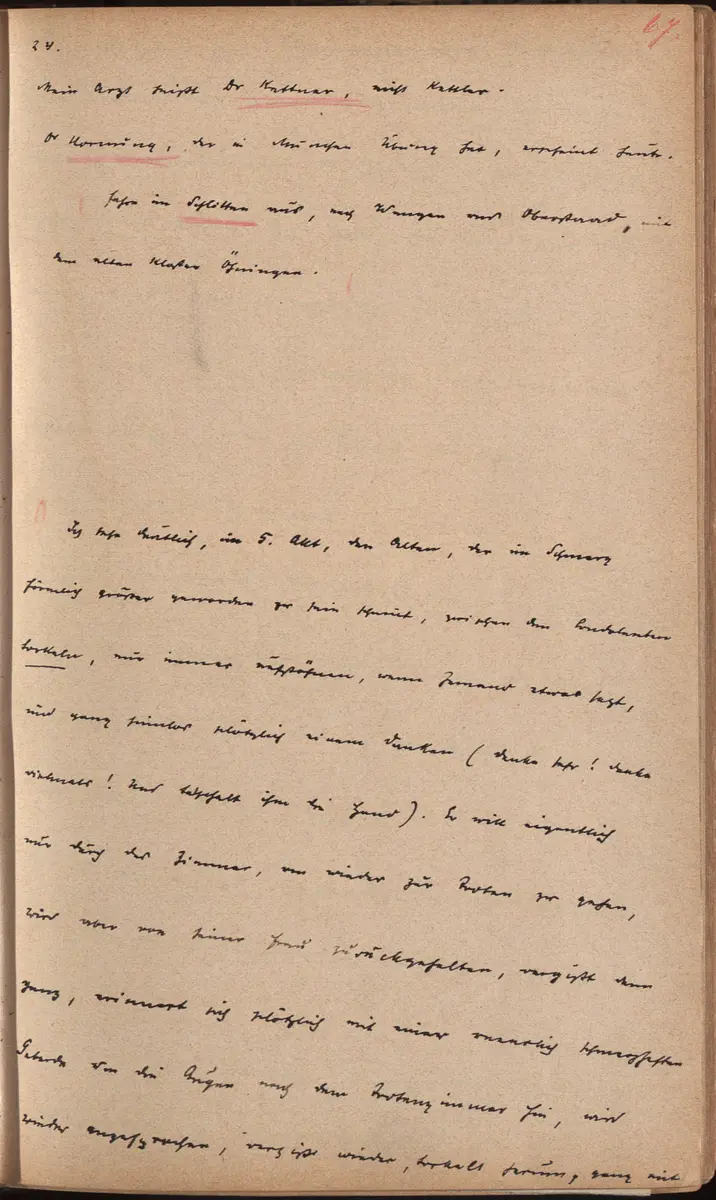 67.
24.
Mein Arzt heißt Dr Kettner, nicht Kettler.
Dr Hornung, der in München Übung hat, erscheint heute.
Fahre im Schlitten aus, nach Wangen und Oberstaad, mit
dem alten Kloster Öhningen.
Ich sehe deutlich, im 5. Akt, den Alten, der im Schmerz
förmlich größer geworden zu sein scheint, zwischen den Kondolenten
torkeln, nur immer aufstöhnen, wenn Jemand etwas sagt,
und ganz sinnlos plötzlich einem danken (danke sehr! danke
vielmals! Und tätschelt ihm die Hand). Er will eigentlich
nur durch das Zimmer, um wieder zur Toten zu gehen,
wird aber von seiner Frau zurückgehalten, vergißt dann
ganz, erinnert sich plötzlich mit einer unendlich schmerzhaften
Geberde um die Augen nach dem Totenzimmer hin, wird
wieder angesprochen, vergißt wieder, torkelt herum, ganz mit